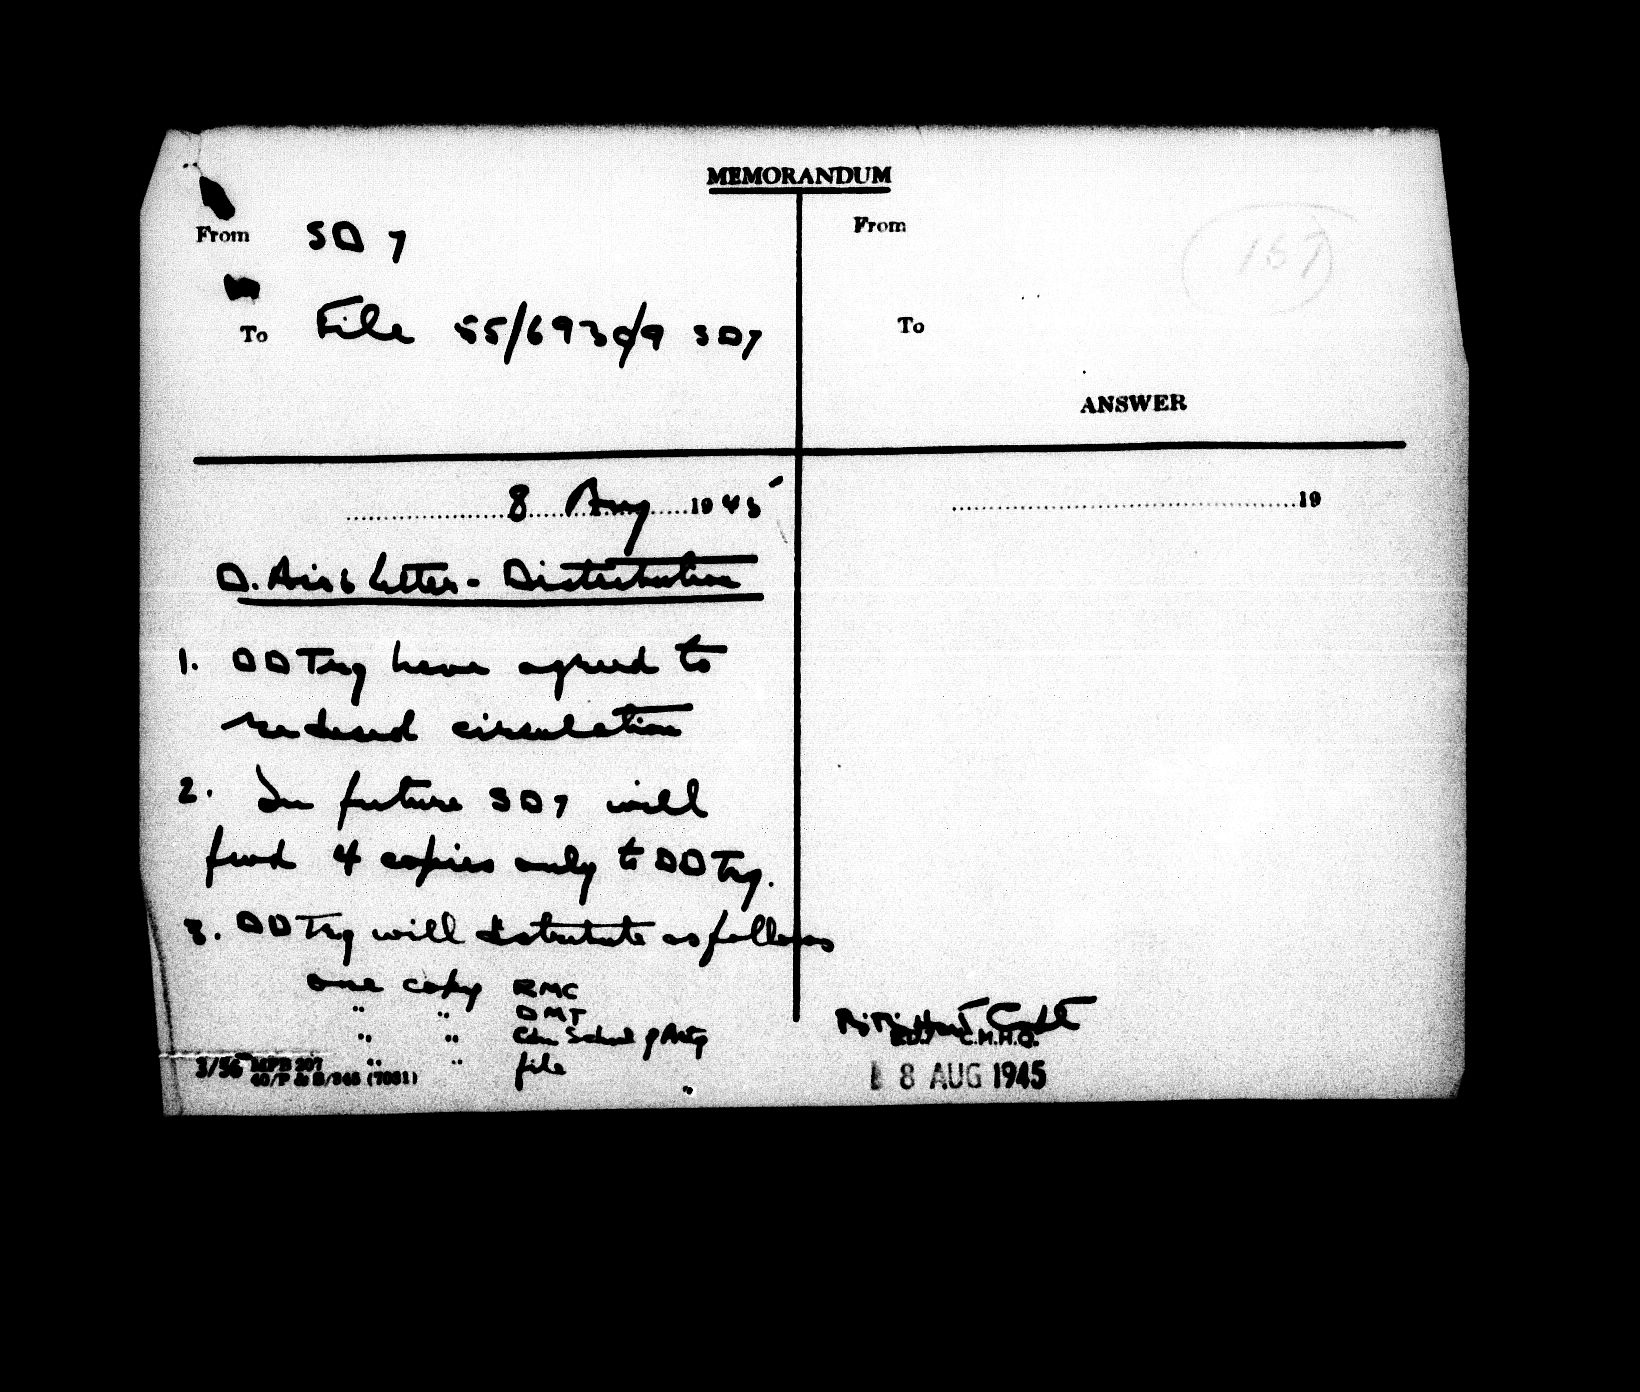 MEMORANDUM
From SD 7
To File 55/6930/9 SD7
8 Aug 1945
D. Air's Letter - Distribution
1. DD Trg have agreed to
reduced circulation
2. In future SD 7 will
fwd 4 copies only to DD Trg.
3. DD Trg will distribute as follows
one copy RMC
" " DMT
" " Cdn School of Arty
" " file
3/56 MPB 207
40/P & S/346 (7081)
From
167
To
ANSWER
19
SD.7 C.M.H.Q.
8 AUG 1945